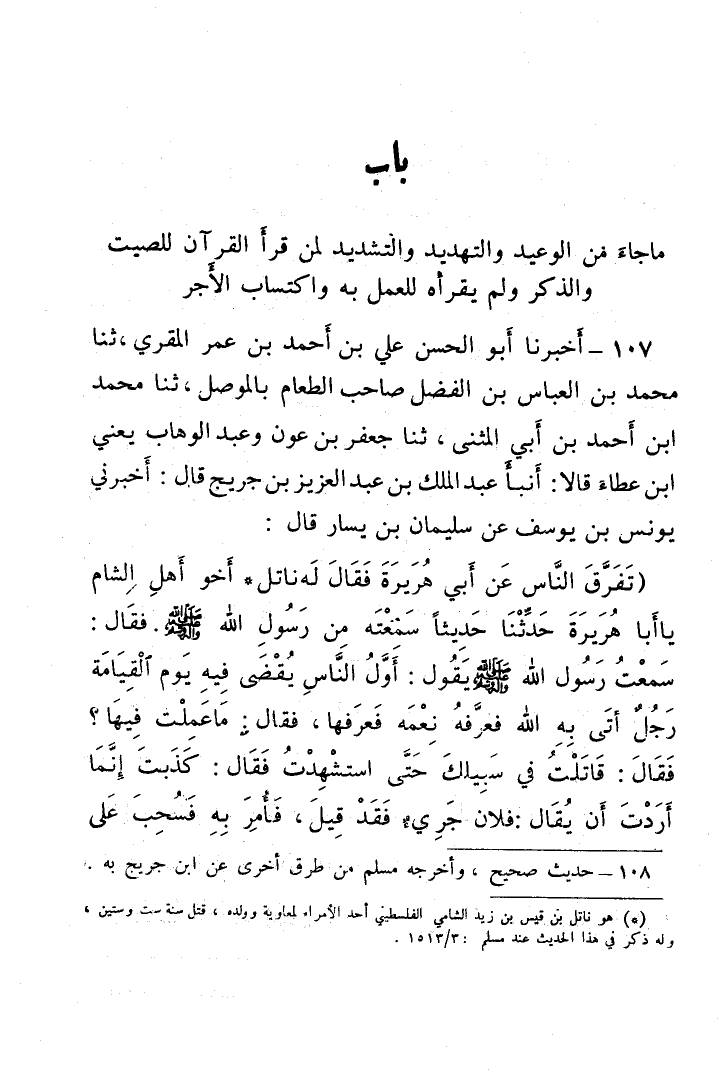 باب
ماجاءَ مْن الوعيد والتهديد والتشديد لمن قرأَ القرآن للصيت
والذكر ولم يقرأه للعمل به واكتساب الأَجر
١٠٧ – أَخبرنا أَبو الحسن علي بن أَحمد بن عمر المقري ، ثنا
محمد بن العباس بن الفضل صاحب الطعام بالموصل ، ثنا محمد
ابن أَحمد بن أَبي المثنى ، ثنا جعفر بن عون وعبد الوهاب يعني
ابن عطاءَ قالا : أَنبأَ عبد الملك بن عبد العزيز بن جريج قال : أَخبرني
يونس بن يوسف عن سليمان بن يسار قال :
(تَفَرَّقَ النَّاس عَن أَبي هُرَيرَةَ فَقَالَ لَه ناتل* أَخو أَهلِ الشام
ياأَبا هُرَيرَةَ حَدِّثْنَا حَدِيثاً سَمِعْتَه مِن رَسُولِ الله ﷺ . فقَال :
سَمعْتُ رَسُول الله ﷺ يَقُول : أَوَّلُ النَّاسِ يُقْضَى فيهِ يَوم الْقِيَامَة
رَجُلٌ أتَى بِهِ الله فعرَّفهُ نِعْمَه فَعَرَفها ، فقال : مَاعَمِلْت فِيهَا ؟
فَقَالَ : قَاتَلْتُ في سَبِيلكَ حَتَّى استشْهِدْتُ فَقَال : كَذَبتَ إِنَّمَا
أَرَدْتَ أَن يُقَال : فلان جَرِيءٌ فَقَدْ قِيلَ ، فَأُمِرَ بِهِ فَسُحِبَ عَلى
١٠٨ – حديث صحيح ، وأخرجه مسلم من طرق أخرى عن ابن جريج به .
(*) هو ناتل بن قيس بن زيد الشامي الفلسطيني أحد الأمراء لمعاوية وولده ، قتل سنة ست وستين ،
وله ذكر في هذا الحديث عند مسلم : ١٥١٣/٣ .